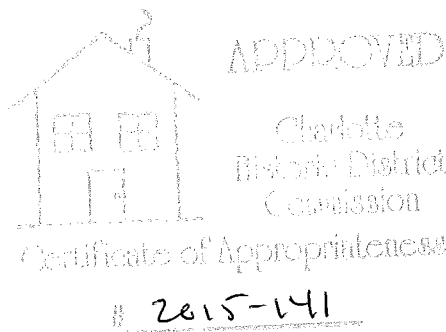 APPROVED
Charlotte
Historic District
Commission
Certificate of Appropriateness
# 2015-141